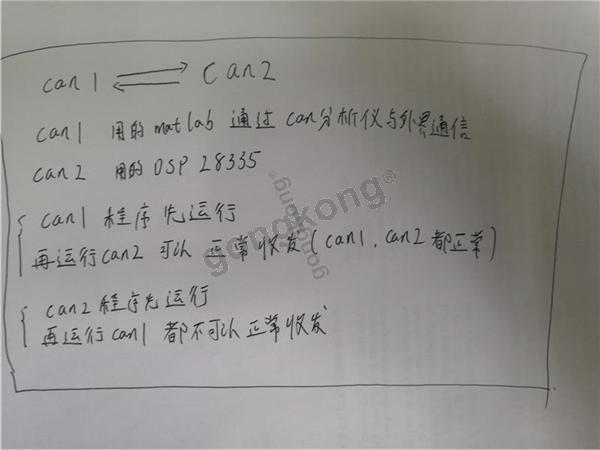 can1 ⇌ Can2
can1 用的matlab 通过can分析仪与外界通信
can2 用的DSP 28335
can1程序先运行
再运行can2 可以正常收发(can1、can2都正常)
can2程序先运行
再运行can1 都不可以正常收发
gongkong®
gongkong®